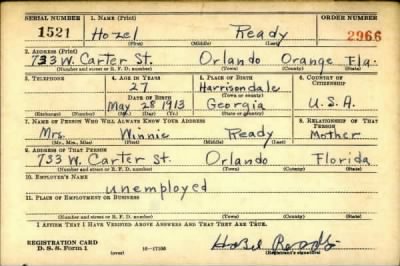 SERIAL NUMBER 1. NAME (Print) ORDER NUMBER
1521 Hozel Ready 2966
(First) (Middle) (Last)
2. ADDRESS (Print)
733 W. Carter St. Orlando Orange Fla.
(Number and street or R. F. D. number) (Town) (County) (State)
3. TELEPHONE 4. AGE IN YEARS 5. PLACE OF BIRTH 6. COUNTRY OF CITIZENSHIP
27 Harrisondale
DATE OF BIRTH (Town or county)
May 28 1913 Georgia U.S.A.
(Exchange) (Number) (Mo.) (Day) (Yr.) (State or country)
7. NAME OF PERSON WHO WILL ALWAYS KNOW YOUR ADDRESS 8. RELATIONSHIP OF THAT PERSON
Mrs. Winnie Ready Mother
(Mr., Mrs., Miss) (First) (Middle) (Last)
9. ADDRESS OF THAT PERSON
733 W. Carter St. Orlando Florida
(Number and street or R. F. D. number) (Town) (County) (State)
10. EMPLOYER'S NAME
unemployed
11. PLACE OF EMPLOYMENT OR BUSINESS
(Number and street or R. F. D. number) (Town) (County) (State)
I AFFIRM THAT I HAVE VERIFIED ABOVE ANSWERS AND THAT THEY ARE TRUE.
REGISTRATION CARD
D. S. S. Form 1 (over) 16-17105
(Registrant's signature)